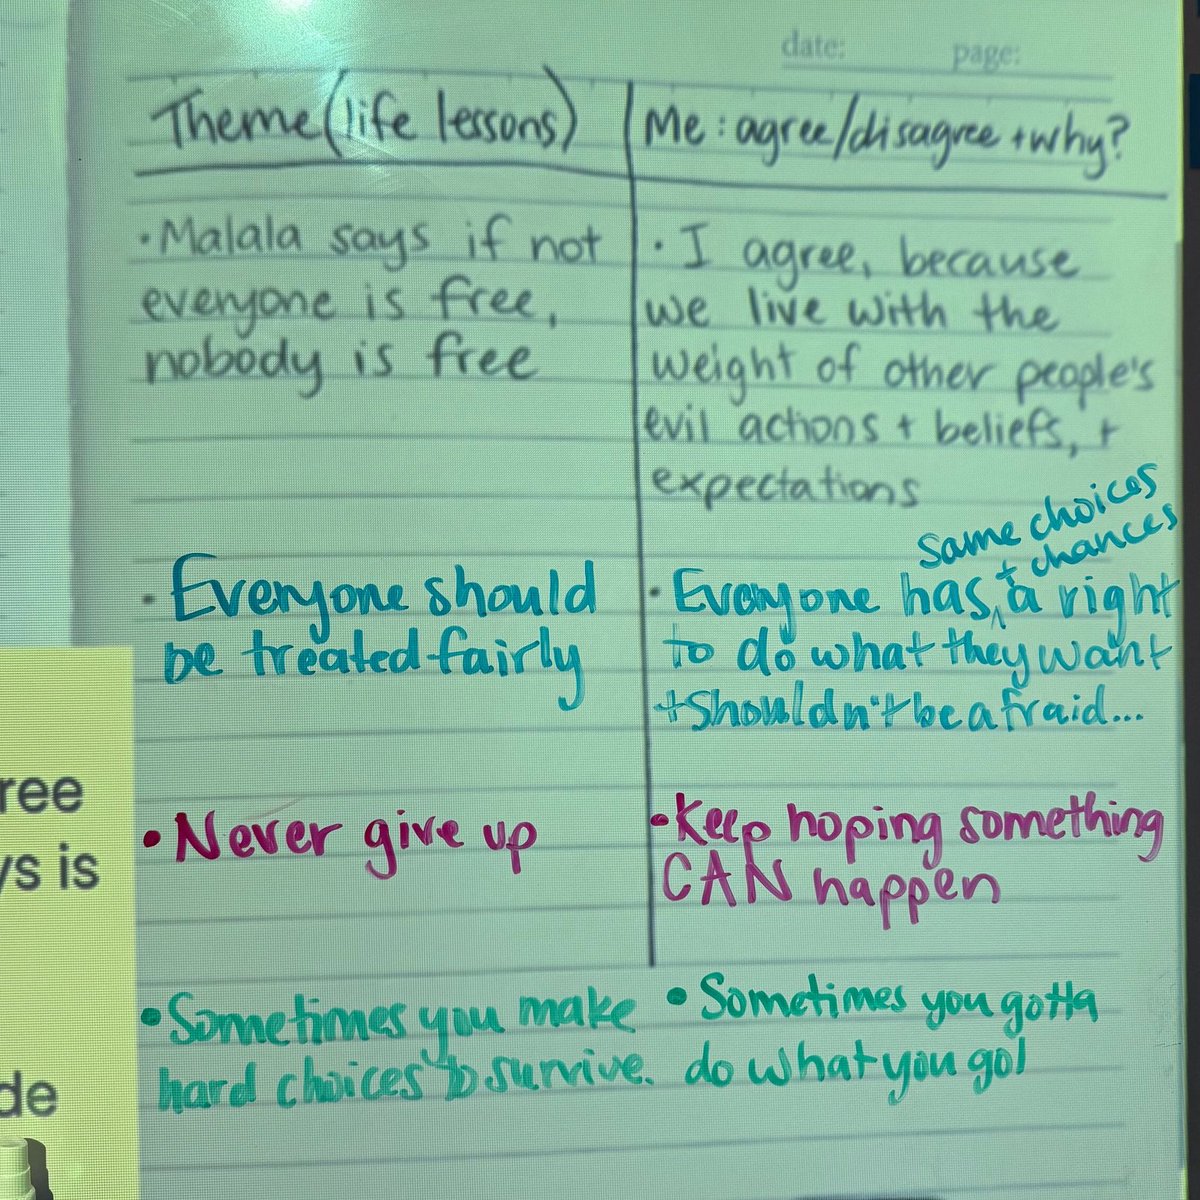 date: page:
Theme (life lessons)
Me: agree/disagree + why?
• Malala says if not
everyone is free,
nobody is free
• I agree, because
we live with the
weight of other people's
evil actions + beliefs, +
expectations
• Everyone should
be treated fairly
same choices
+ chances
• Everyone has ^ a right
to do what they want
+ shouldn't be afraid...
• Never give up
• Keep hoping something
CAN happen
• Sometimes you make
hard choices to survive.
• Sometimes you gotta
do what you go
ree
ys is
de